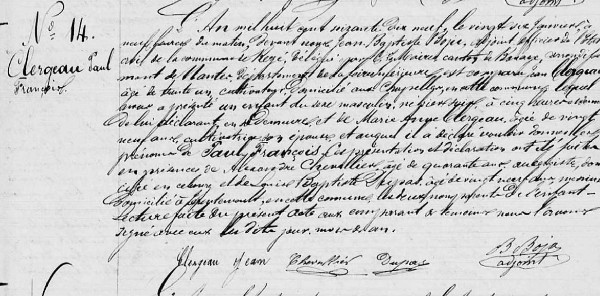 adjoint
No 14.
Clergeau Paul
François
L'An mil huit cent soixante dix neuf, le vingt six Janvier à
neuf heures du matin, devant nous Jean Baptiste Boja, adjoint officier de l'Etat
civil de la commune de Rezé, délégué par le Maire, canton de Bouaye, arrondisse
ment de Nantes, département de la Loire inférieure, est comparu Jean Clergeau
âgé de trente un, cultivateur, domicilié aux en cette commune, lequel
nous a présenté un enfant du sexe masculin, né hier soir, à cinq heures
de lui déclarant, en sa demeure, et de Marie Anne Clergeau, âgée de vingt
neuf ans, cultivatrice son épouse, et auquel il a déclaré vouloir donner les
prénoms de Paul François. Les présentation et déclaration ont été faites
en présence de Alexandre Chevallier, âgé de quarante ans, aubergiste, domi
cilié en ce bourg et de Louis Baptiste Dupas, âgé de vingt neuf ans
domicilié à en cette commune, les deux non parents de l'enfant.
Lecture faite du présent acte aux comparant et témoins nous l'avons
signé avec eux les dits jour, mois et an.
Clergeau Jean Chevallier Dupas
B Boja
adjoint